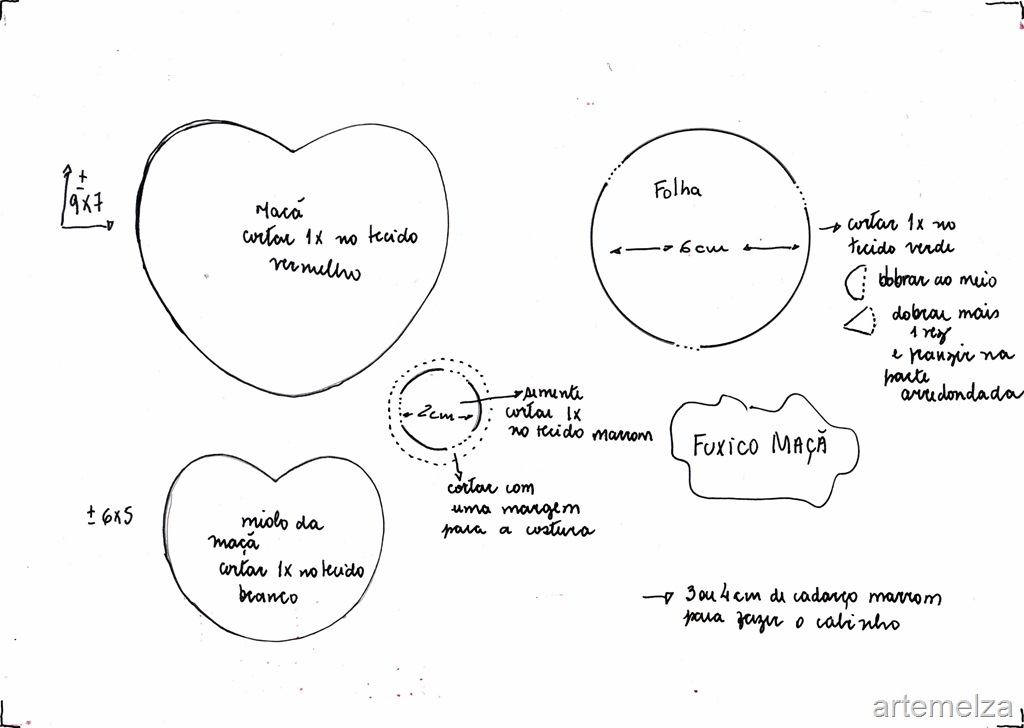 ±
9x7
Maçã
cortar 1x no tecido
vermelho
Folha
6cm
cortar 1x no
tecido verde
dobrar ao meio
dobrar mais
1 vez
e franzir na
parte
arredondada
2cm
semente
cortar 1x
no tecido marrom
cortar com
uma margem
para a costura
FUXICO MAÇÃ
± 6x5
miolo da
maçã
cortar 1x no tecido
branco
3 ou 4 cm de cadarço marrom
para fazer o cabinho
artemelza